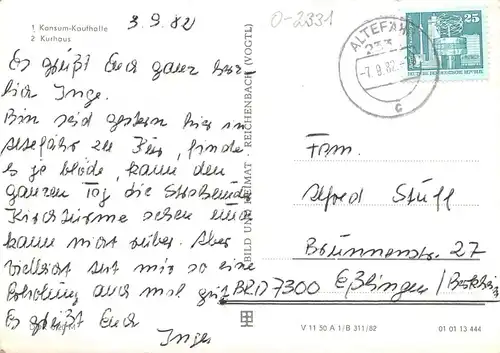 1 Konsum-Kaufhalle
2 Kurhaus
3.9.82
O-2331
Es grüßt Euch ganz herz-
lich Inge.
Bin seid gestern hier in
Altefähr zu Kur, finde
es je blöde, kann den
ganzen Tag die Stralsunde
Kirchtürme sehen und
kann nicht rüber. Aber
vielleicht tut mir so eine
Erholung auch mal gut
Es grüßt Euch
Inge
BILD UND HEIMAT · REICHENBACH (VOGTL)
ALTEFÄHR
-7.9.82
c
25
DEUTSCHE DEMOKRATISCHE REPUBLIK
Fam.
Alfred Stüff
Brunnenstr. 27
BRD 7300 Eßlingen
V 11 30 A 1/B 311/82
01 01 13 444